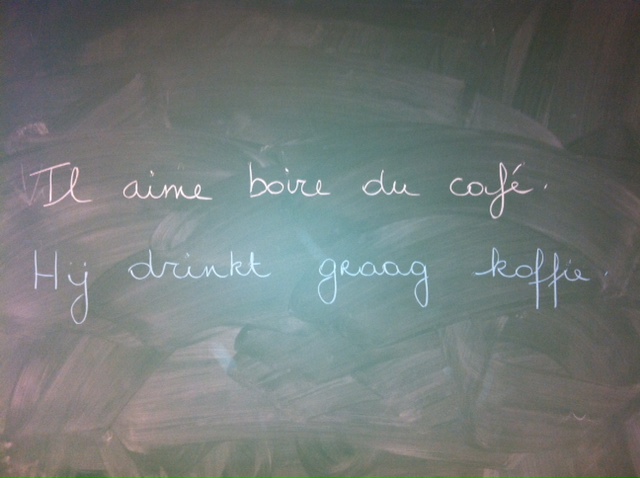 Il aime boire du café.
Hij drinkt graag koffie.